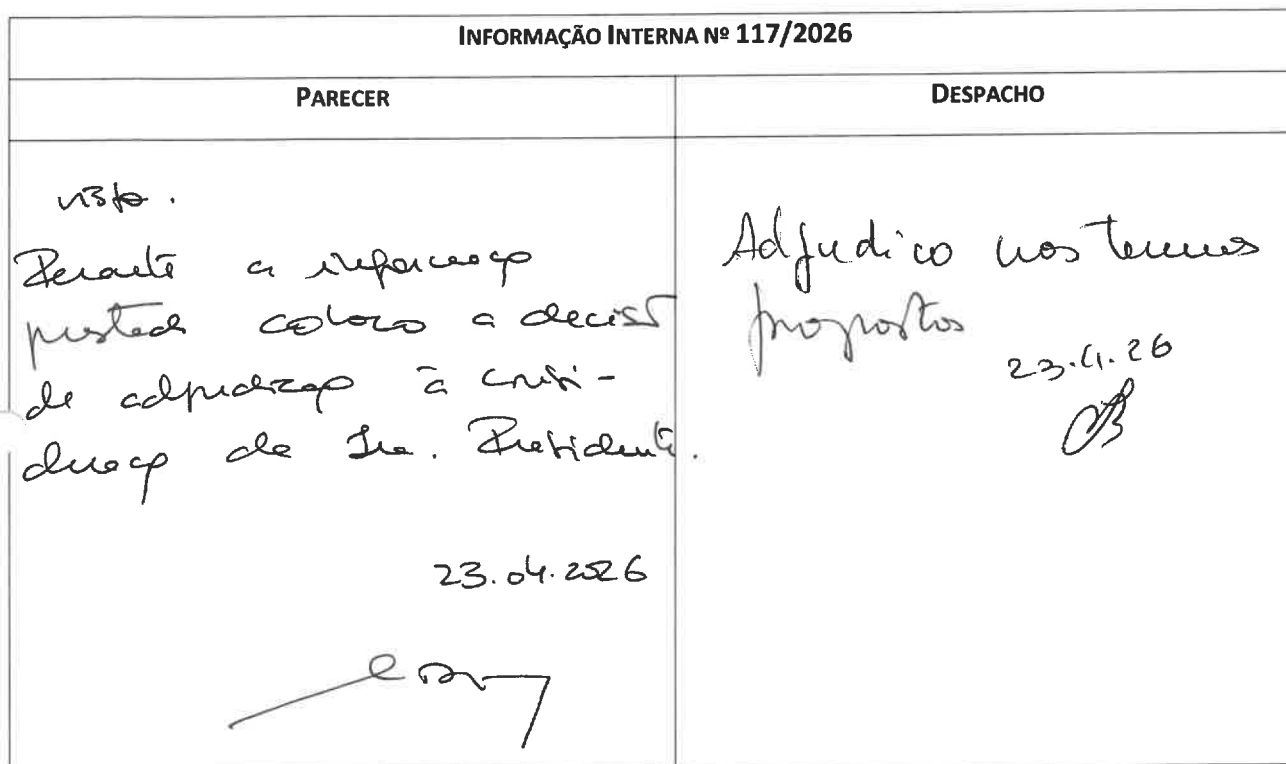 INFORMAÇÃO INTERNA Nº 117/2026
PARECER
visto.
Perante a informação
prestada coloco a decisão
de adjudicação à consi-
deração da Sra. Presidente.
23.04.2026
DESPACHO
Adjudico nos termos
propostos
23.4.26